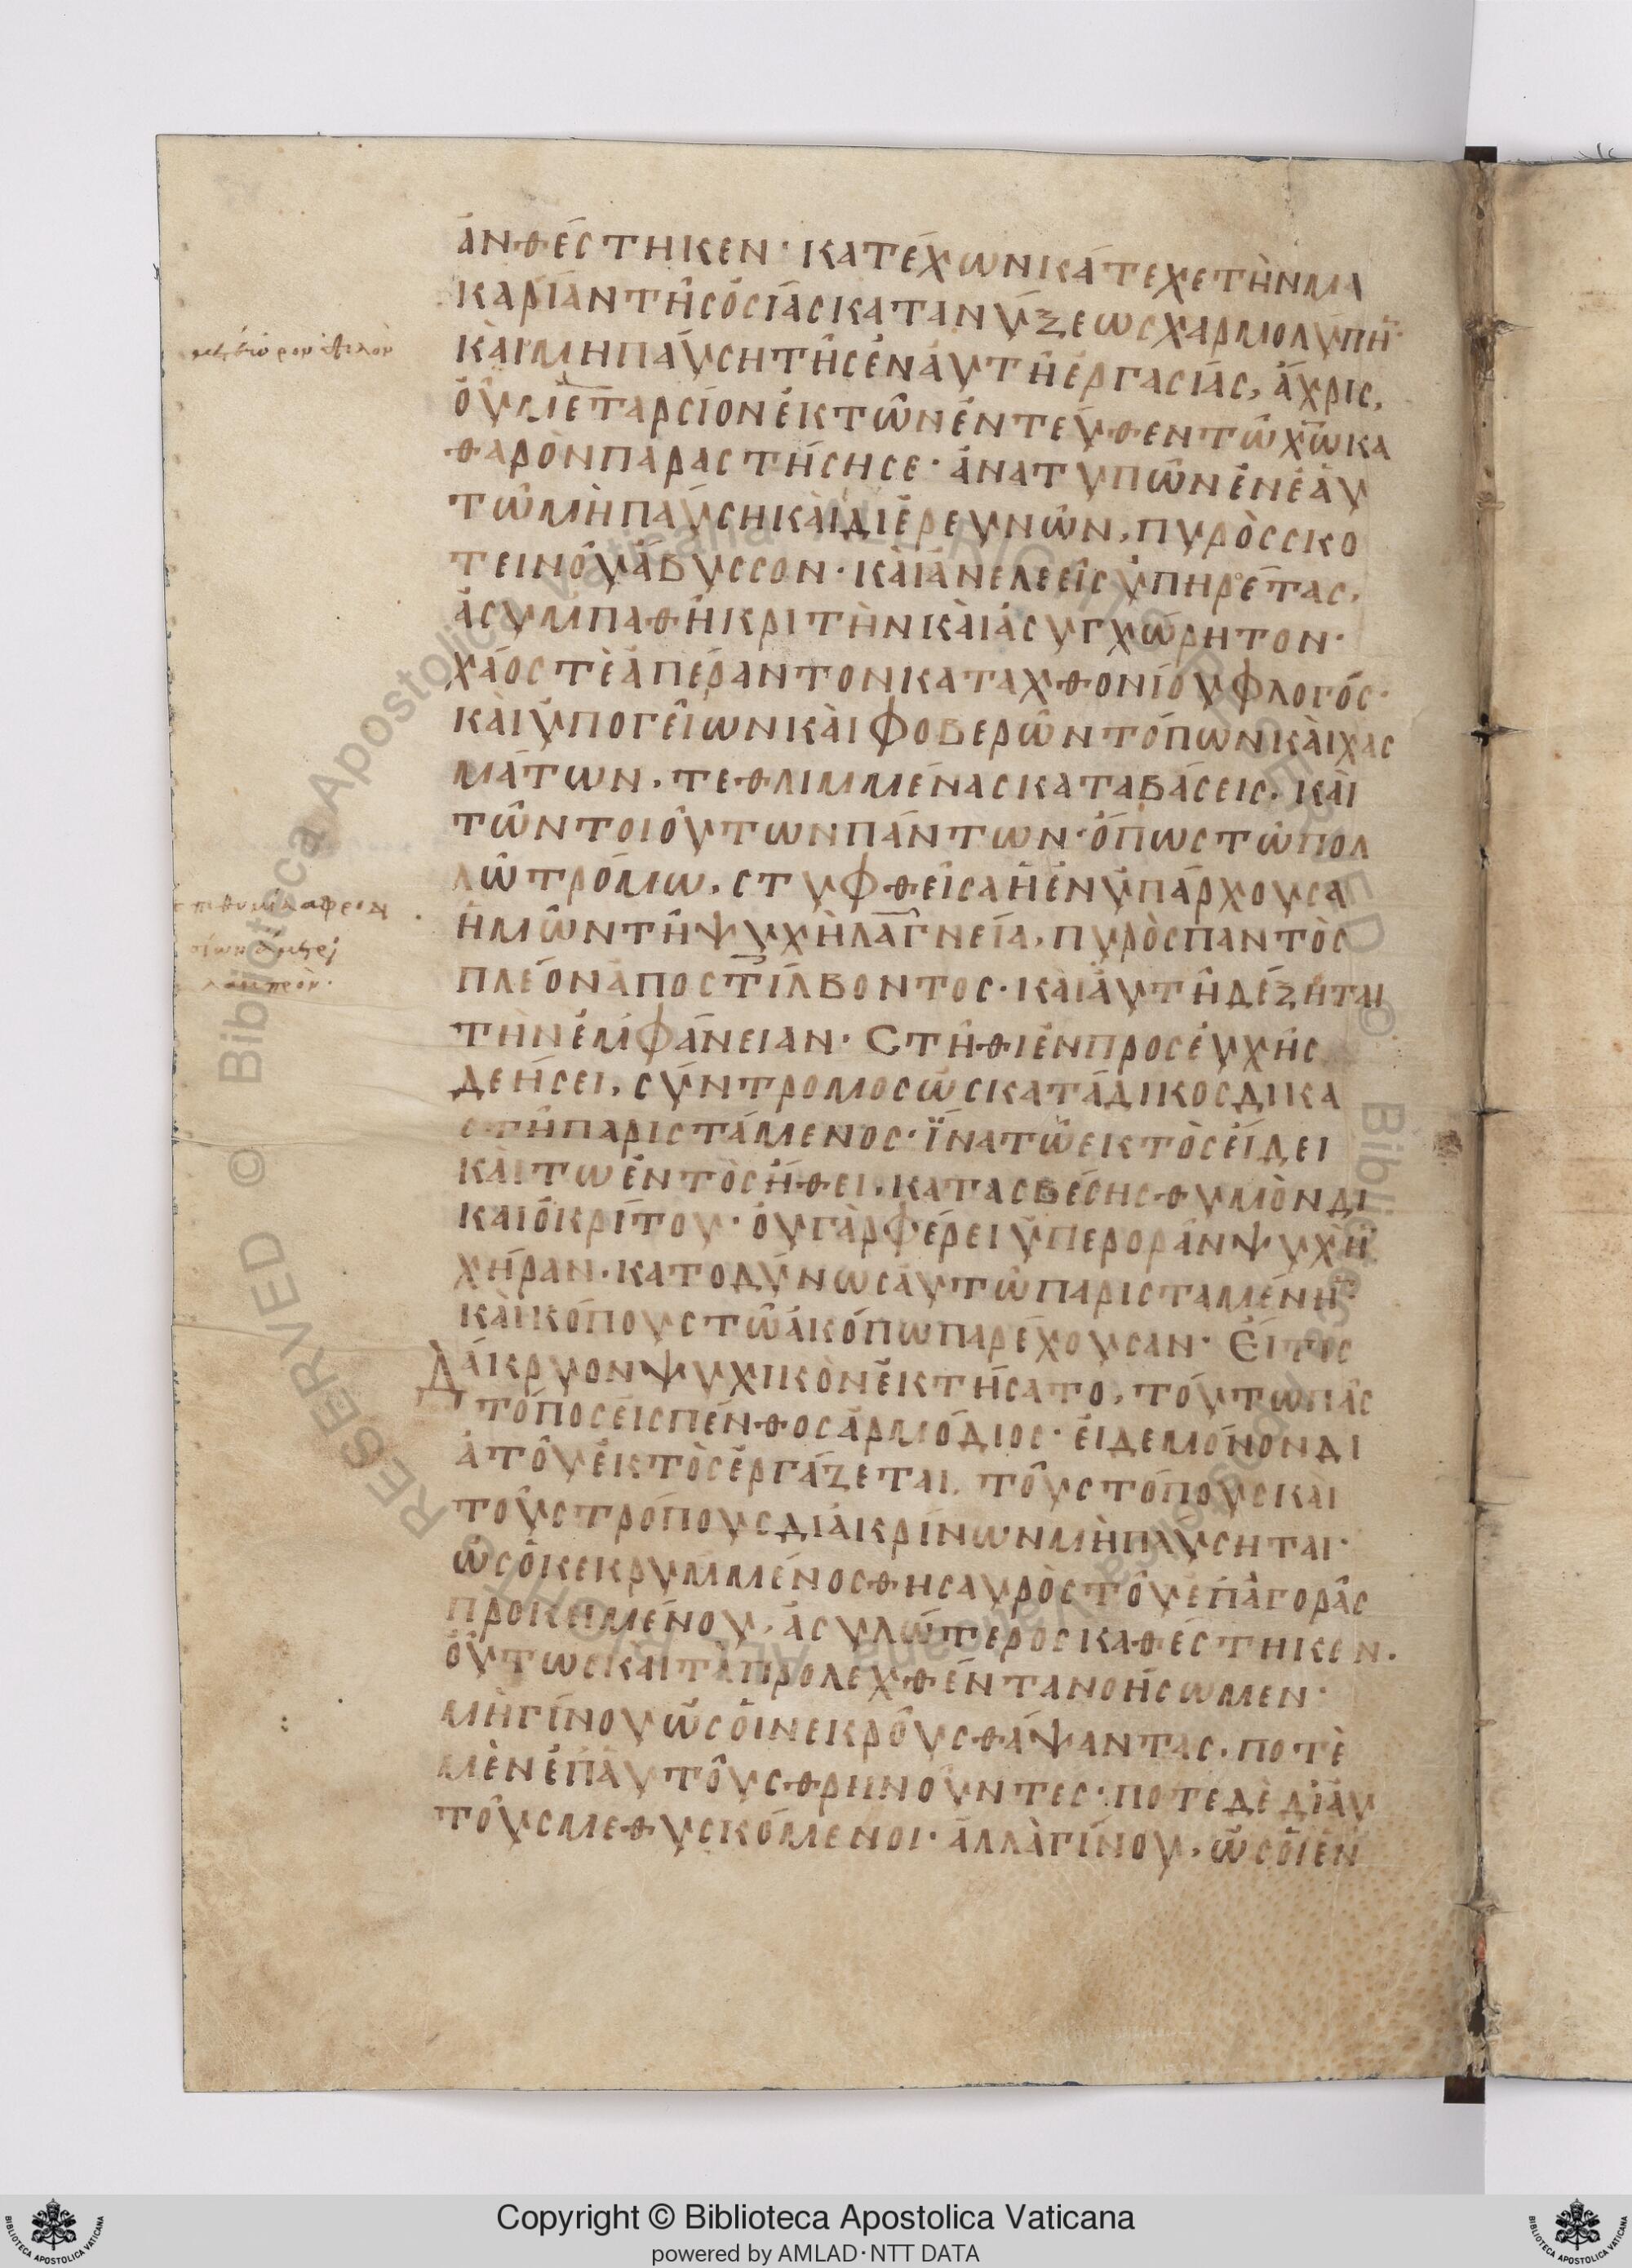 ἀνθέστηκεν· κατέχων κάτεχε τὴν μα
καρίαν τῆς ὁσίας κατανύξεως χαρμολύπην·
καὶ μὴ παύσῃ τῆς ἐν αὐτῇ ἐργασίας, ἄχρις,
οὗ μετάρσιον ἐκ τῶν ἐντεῦθεν τῷ χ̅ω̅ κα
θαρὸν παραστήσῃ σε· ἀνατυπῶν ἐν ἑαυ
τῷ μὴ παύσῃ καὶ διερευνῶν, πυρὸς σκο
τεινοῦ ἄβυσσον· καὶ ἀνελεεῖς ὑπηρέτας,
ἀσυμπαθῆ κριτὴν καὶ ἀσυγχώρητον·
χάος τὲ ἀπέραντον καταχθονίου φλογός·
καὶ ὑπογείων καὶ φοβερῶν τόπων καὶ χασ
μάτων, τεθλιμμένας καταβάσεις, καὶ
τῶν τοιούτων πάντων· ὅπως τῷ πολ
λῷ τρόμω, στυφθεῖσα ἡ ἐνυπάρχουσα
ἡμῶν τῇ ψυχῇ λαγνεία, πυρὸς παντὸς
πλέον ἀποστίλβοντος· καὶ αὐτὴ δέξηται
τὴν ἐμφάνειαν· Στῆθι ἐν προσευχῆς
δεήσει, σύντρομος ὡς κατάδικος δικα
στῇ παριστάμενος· ἵνα τῷ ἐκτὸς εἴδει
καὶ τῷ ἐντὸς ἤθει, κατασβέσῃς θυμὸν δι
καιοκρίτου· οὐ γὰρ φέρει ὑπερορᾶν ψυχὴν
χήραν, κατοδύνως αὐτῷ παρισταμένην
καὶ κόπους τῷ ἀκόπῳ παρέχουσαν· Εἴ τις
Δάκρυον ψυχικὸν ἐκτήσατο, τούτω πᾶς
τόπος εἰς πένθος ἁρμόδιος· εἰ δε μόνον δι
ὰ τοῦ ἐκτὸς ἐργάζεται, τοὺς τόπους καὶ
τοὺς τρόπους διακρίνων μὴ παύσηται·
ὡς ὁ κεκρυμμένος θησαυρὸς τοῦ ἐπ᾽ ἀγορᾶς
προκειμένου, ἀσυλώτερος καθέστηκεν.
οὕτως καὶ τὰ προλεχθέντα νοήσωμεν·
μὴ γίνου ὡς οἱ νεκροὺς θάψαντας, ποτὲ
μὲν ἐπ᾽ αὐτοὺς θρηνοῦντες· ποτὲ δὲ δι᾽ αὐ
τοὺς μεθυσκόμενοι· ἀλλὰ γίνου, ὡς οἱ ἐν
Copyright © Biblioteca Apostolica Vaticana
powered by AMLAD·NTT DATA